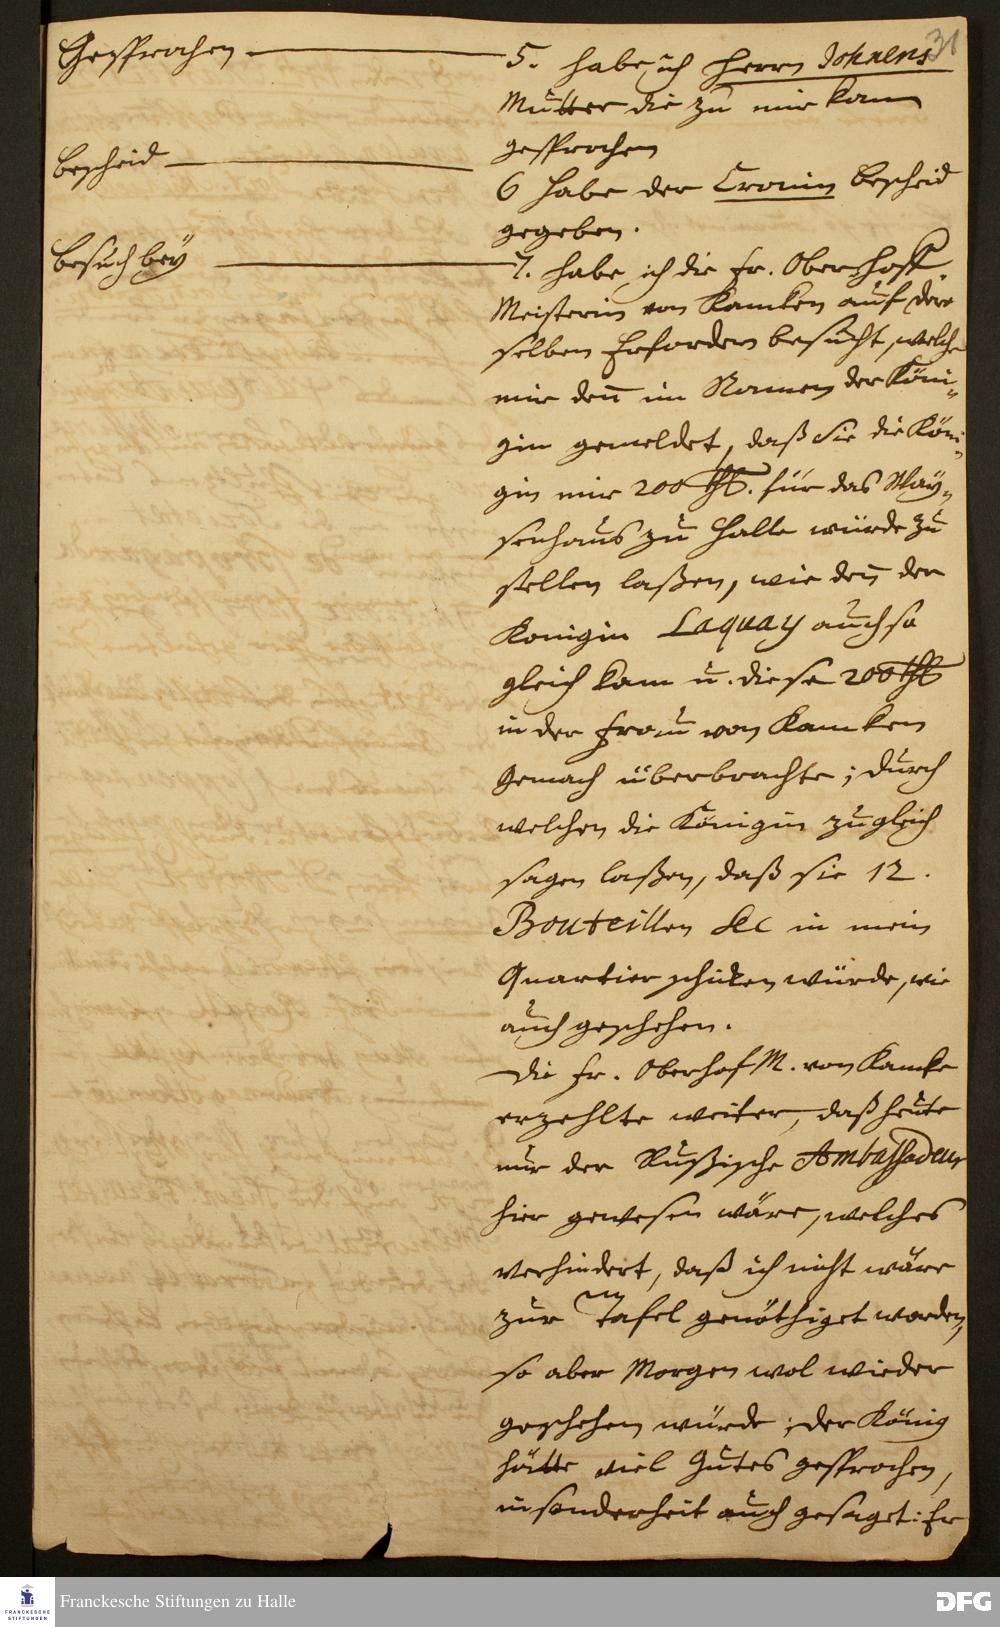 31
Gesprochen
5. habe ich Herrn Johnens
Mutter die zu mir kam
gesprochen
bescheid
6 habe der Cronin bescheid
gegeben.
besuch bey
7. habe ich die Fr. Oberhoff
Meisterin von Kamken auf der
selben Erfordern besucht, welche
mir deñ im Namen der Köni-
gin gemeldet, daß Sie die Köni-
gin mir 200 Thl. für das Way-
senhaus zu Halle würde zu
stellen laßen, wie deñ der
Konigin Laquay auch so
gleich kam u. diese 200 Thl
in der Frau von Kamken
Gemach überbrachte; durch
welchen die Königin zugleich
sagen laßen, daß sie 12.
Bouteillen Sec in mein
Quartier schicken würde, wie
auch geschehen.
Die Fr. Oberhof M. von Kamke
erzehlte weiter, daß heute
nur der Rußische Ambassadeur
hier gewesen wäre, welches
verhindert, daß ich nicht wäre
zur Tafel genöthiget worden,
so aber Morgen wol wieder
geschehen würde; der König
hätte viel Gutes gesprochen,
insonderheit auch gesaget: Er
FRANCKESCHE
STIFTUNGEN
Franckesche Stiftungen zu Halle
DFG